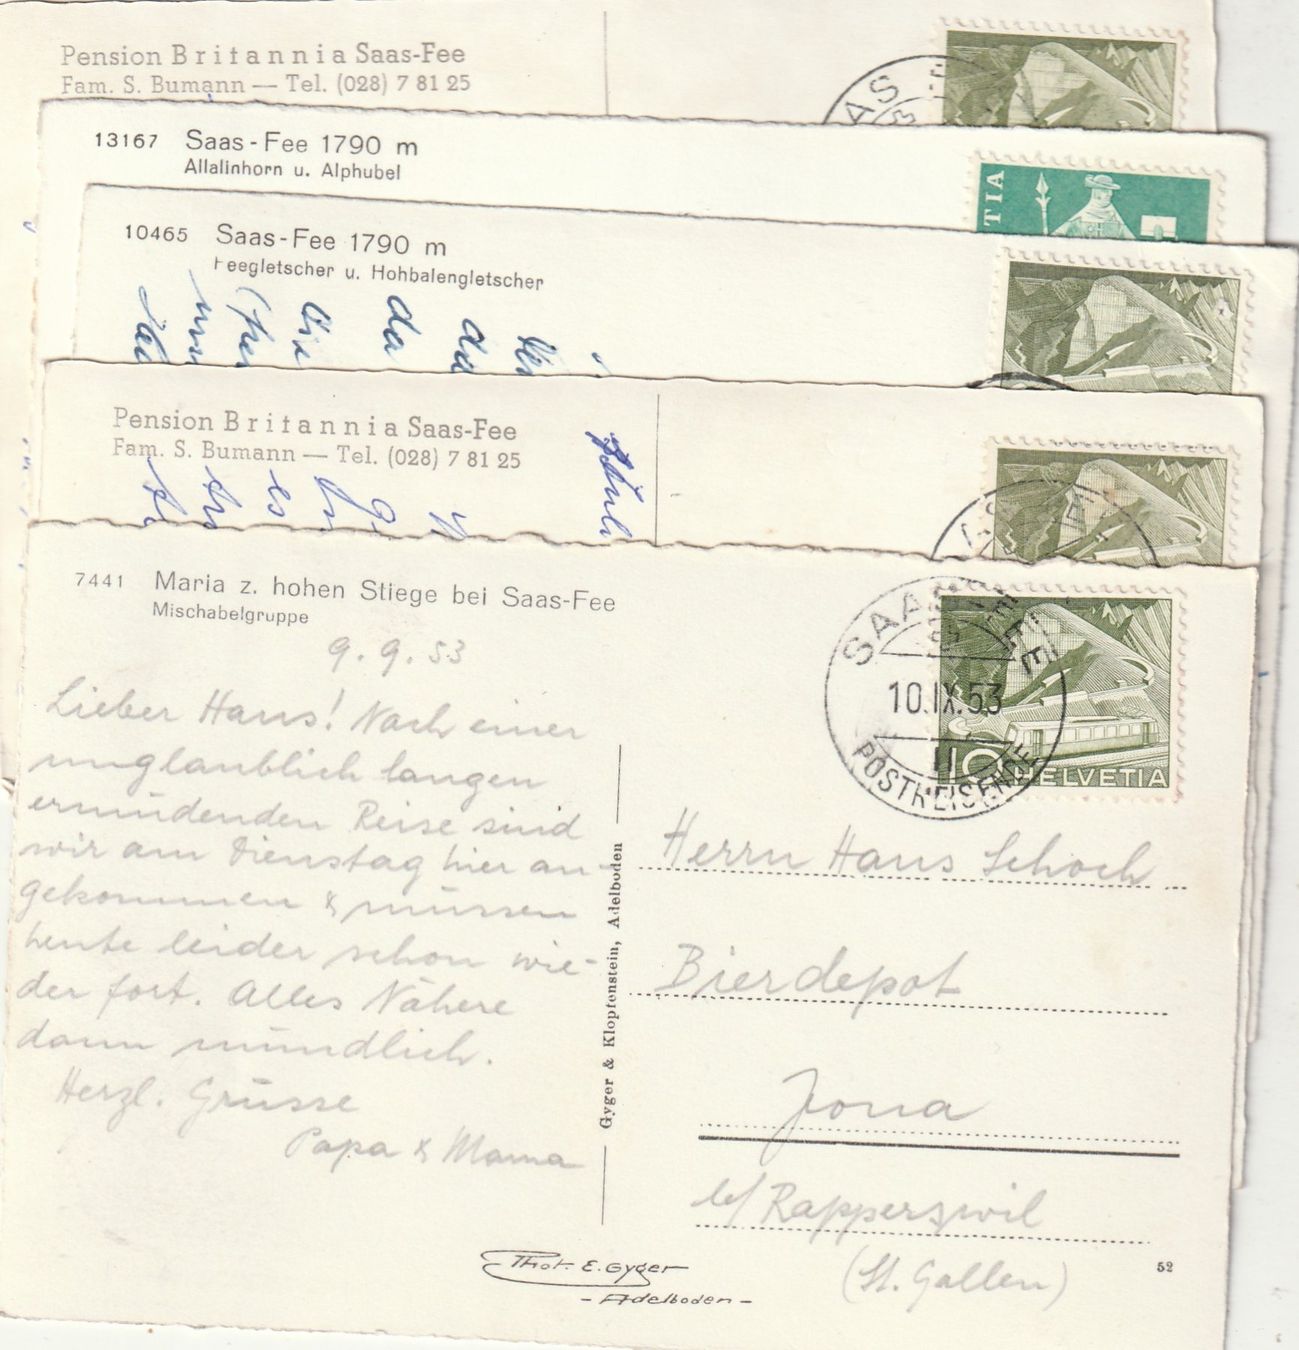 Pension Britannia Saas-Fee
Fam. S. Bumann — Tel. (028) 7 81 25
AS
13167 Saas-Fee 1790 m
Allalinhorn u. Alphubel
TIA
10465 Saas-Fee 1790 m
Feegletscher u. Hohbalengletscher
da
Pension Britannia Saas-Fee
Fam. S. Bumann — Tel. (028) 7 81 25
es
7441 Maria z. hohen Stiege bei Saas-Fee
Mischabelgruppe
9.9.53
Lieber Hans! Nach einer
unglaublich langen
ermüdenden Reise sind
wir am Dienstag hier an-
gekommen & müssen
heute leider schon wie-
der fort. Alles Nähere
dann mündlich.
Herzl. Grüsse
Papa & Mama
Gyger & Klopfenstein, Adelboden
SAAS
10.IX.53
II
POSTREISENDE
10 HELVETIA
Herrn Hans Schoch
Bierdepot
Jona
b/ Rapperswil
(St. Gallen)
Phot. E. Gyger
- Adelboden -
52